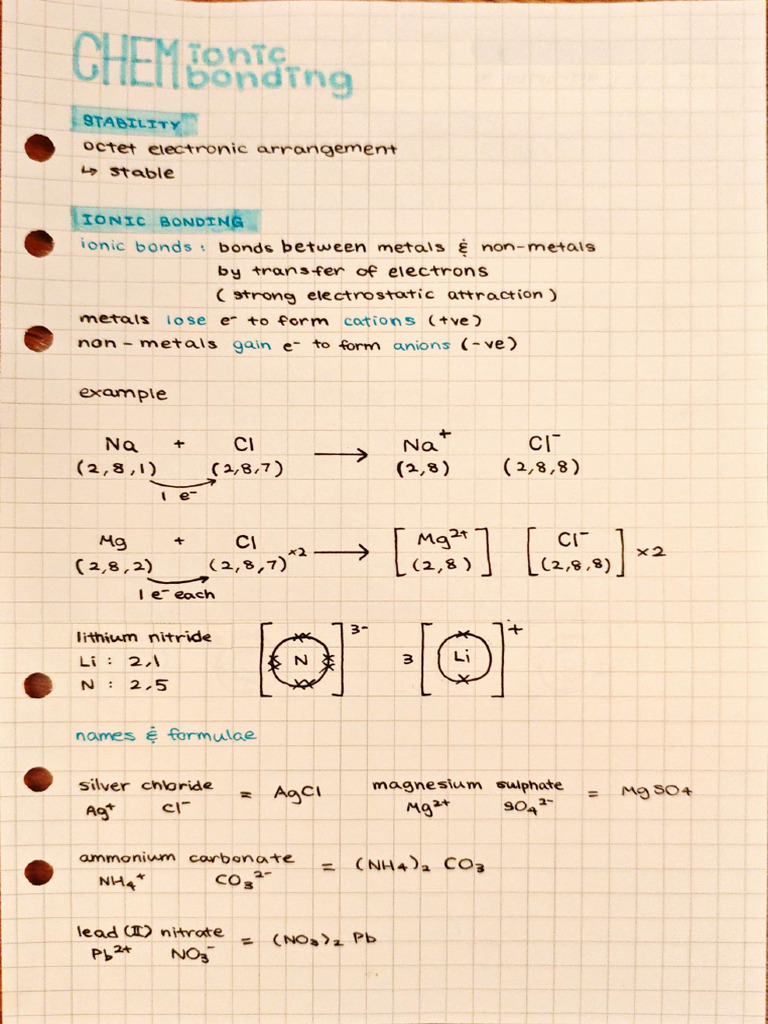 CHEM ionic bonding
STABILITY
octet electronic arrangement
↳ stable
IONIC BONDING
ionic bonds: bonds between metals & non-metals
by transfer of electrons
(strong electrostatic attraction)
metals lose e⁻ to form cations (+ve)
non-metals gain e⁻ to form anions (-ve)
example
Na + Cl ⟶ Na⁺ Cl⁻
(2,8,1) (2,8,7) (2,8) (2,8,8)
1 e⁻
Mg + Cl ⟶ [Mg²⁺] [Cl⁻] ×2
(2,8,2) (2,8,7) ×2 (2,8) (2,8,8)
1 e⁻ each
lithium nitride [N]³⁻ 3[Li]⁺
Li : 2,1
N : 2,5
names & formulae
silver chloride = AgCl magnesium sulphate = MgSO4
Ag⁺ Cl⁻ Mg²⁺ SO₄²⁻
ammonium carbonate = (NH4)₂ CO₃
NH₄⁺ CO₃²⁻
lead (II) nitrate = (NO₃)₂ Pb
Pb²⁺ NO₃⁻